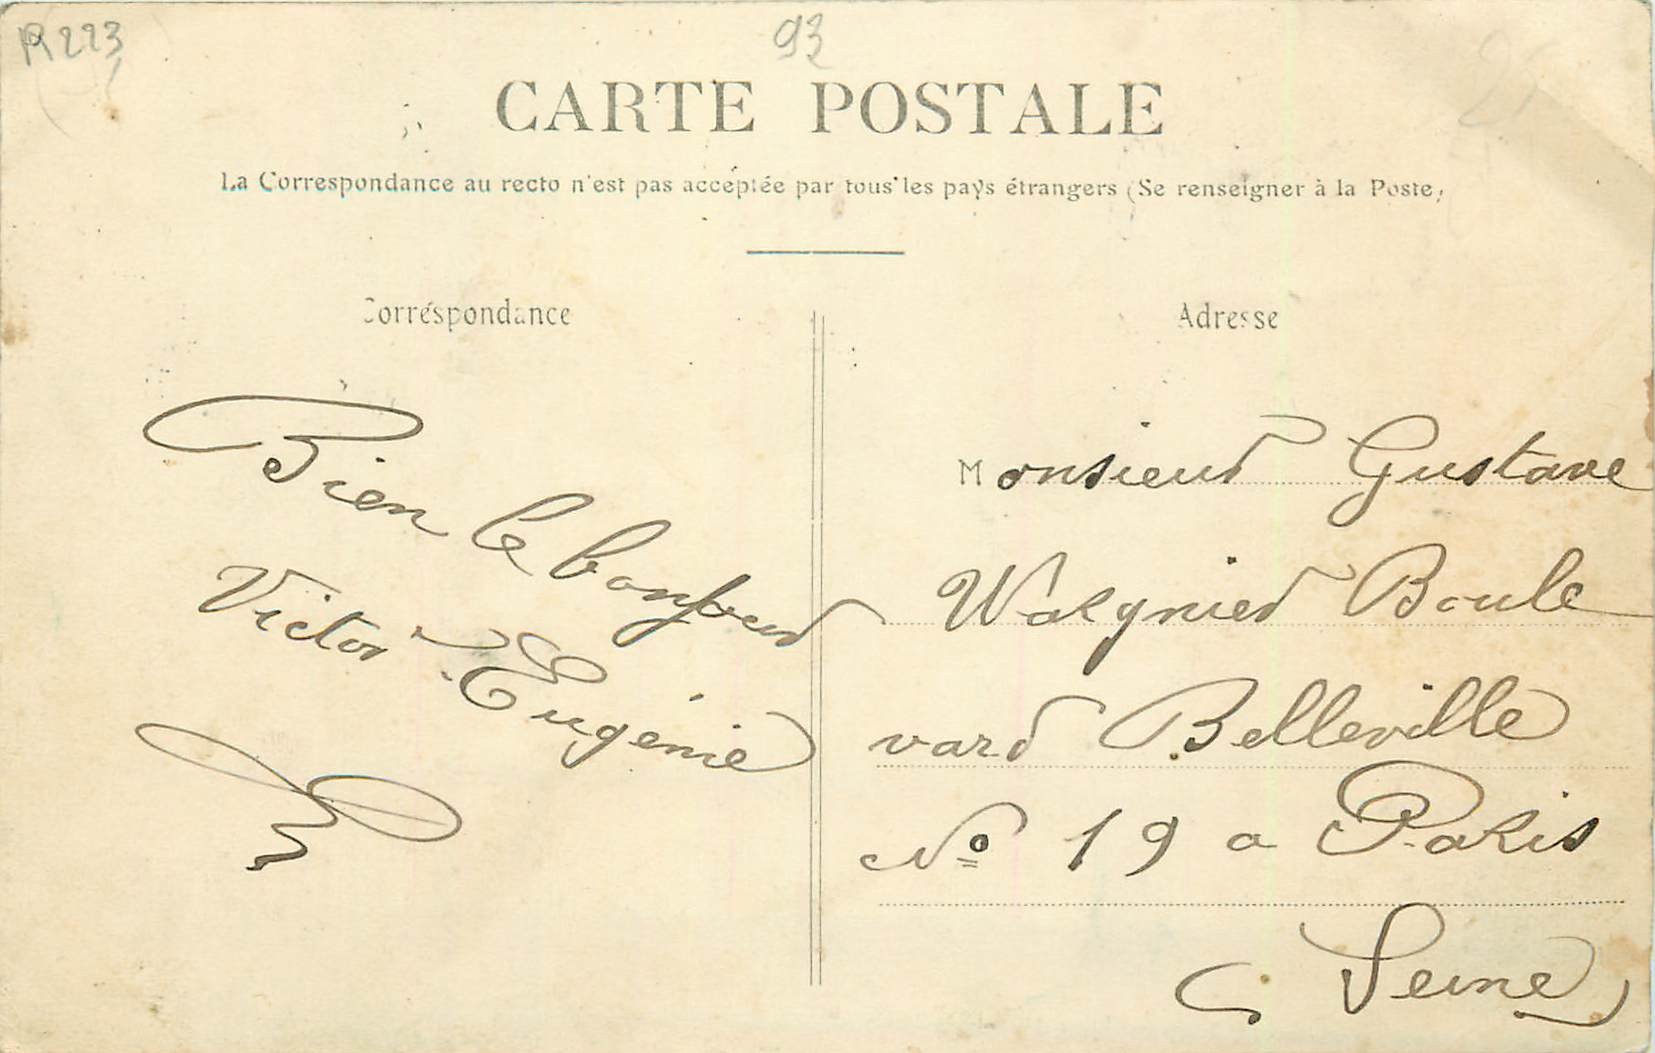 R223
93
CARTE POSTALE
La Correspondance au recto n'est pas acceptée par tous les pays étrangers (Se renseigner à la Poste)
Correspondance
Bien le bonjour
Victor Eugénie
Adresse
Monsieur Gustave
Walgnier Boule
vard Belleville
No 19 a Paris
(Seine)